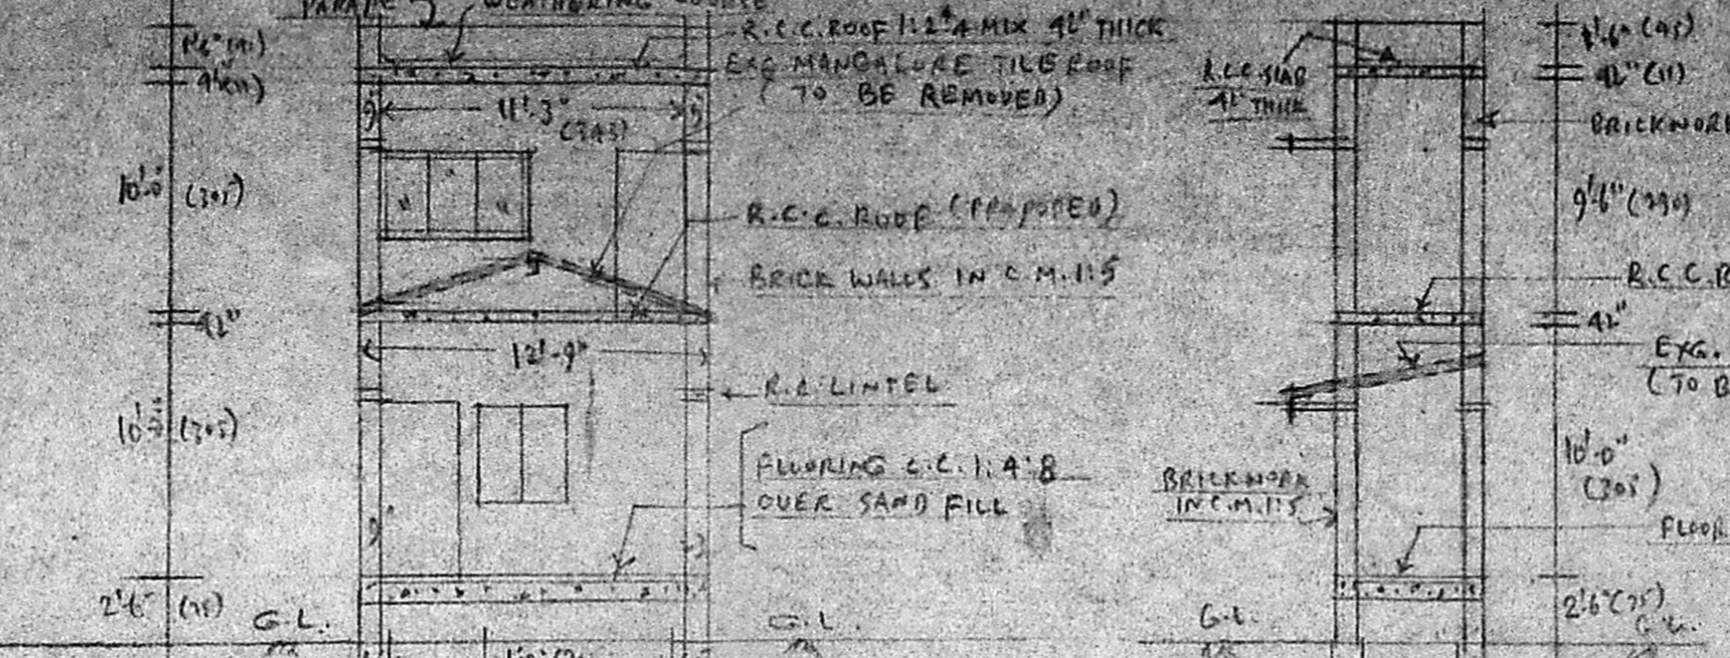 WEATHERING COURSE
R.C.C. ROOF 1:2:4 MIX 4½" THICK
EXG MANGALORE TILE ROOF
(TO BE REMOVED)
9"
11'-3"
(343)
9"
10'-0" (305)
R.C.C. ROOF (PROPOSED)
BRICK WALLS IN C.M. 1:5
4½"
12'-9"
R.C. LINTEL
10'-0" (305)
FLOORING C.C. 1:4:8
OVER SAND FILL
2'-6" (75)
G.L.
G.L.
1'-6" (45)
R.C.C. SLAB
4½" THICK
4½" (11)
BRICKWORK
9'-6" (290)
4½"
EXG.
BRICKWORK
IN C.M. 1:5
10'-0"
(305)
2'-6" (75)
G.L.
G.L.